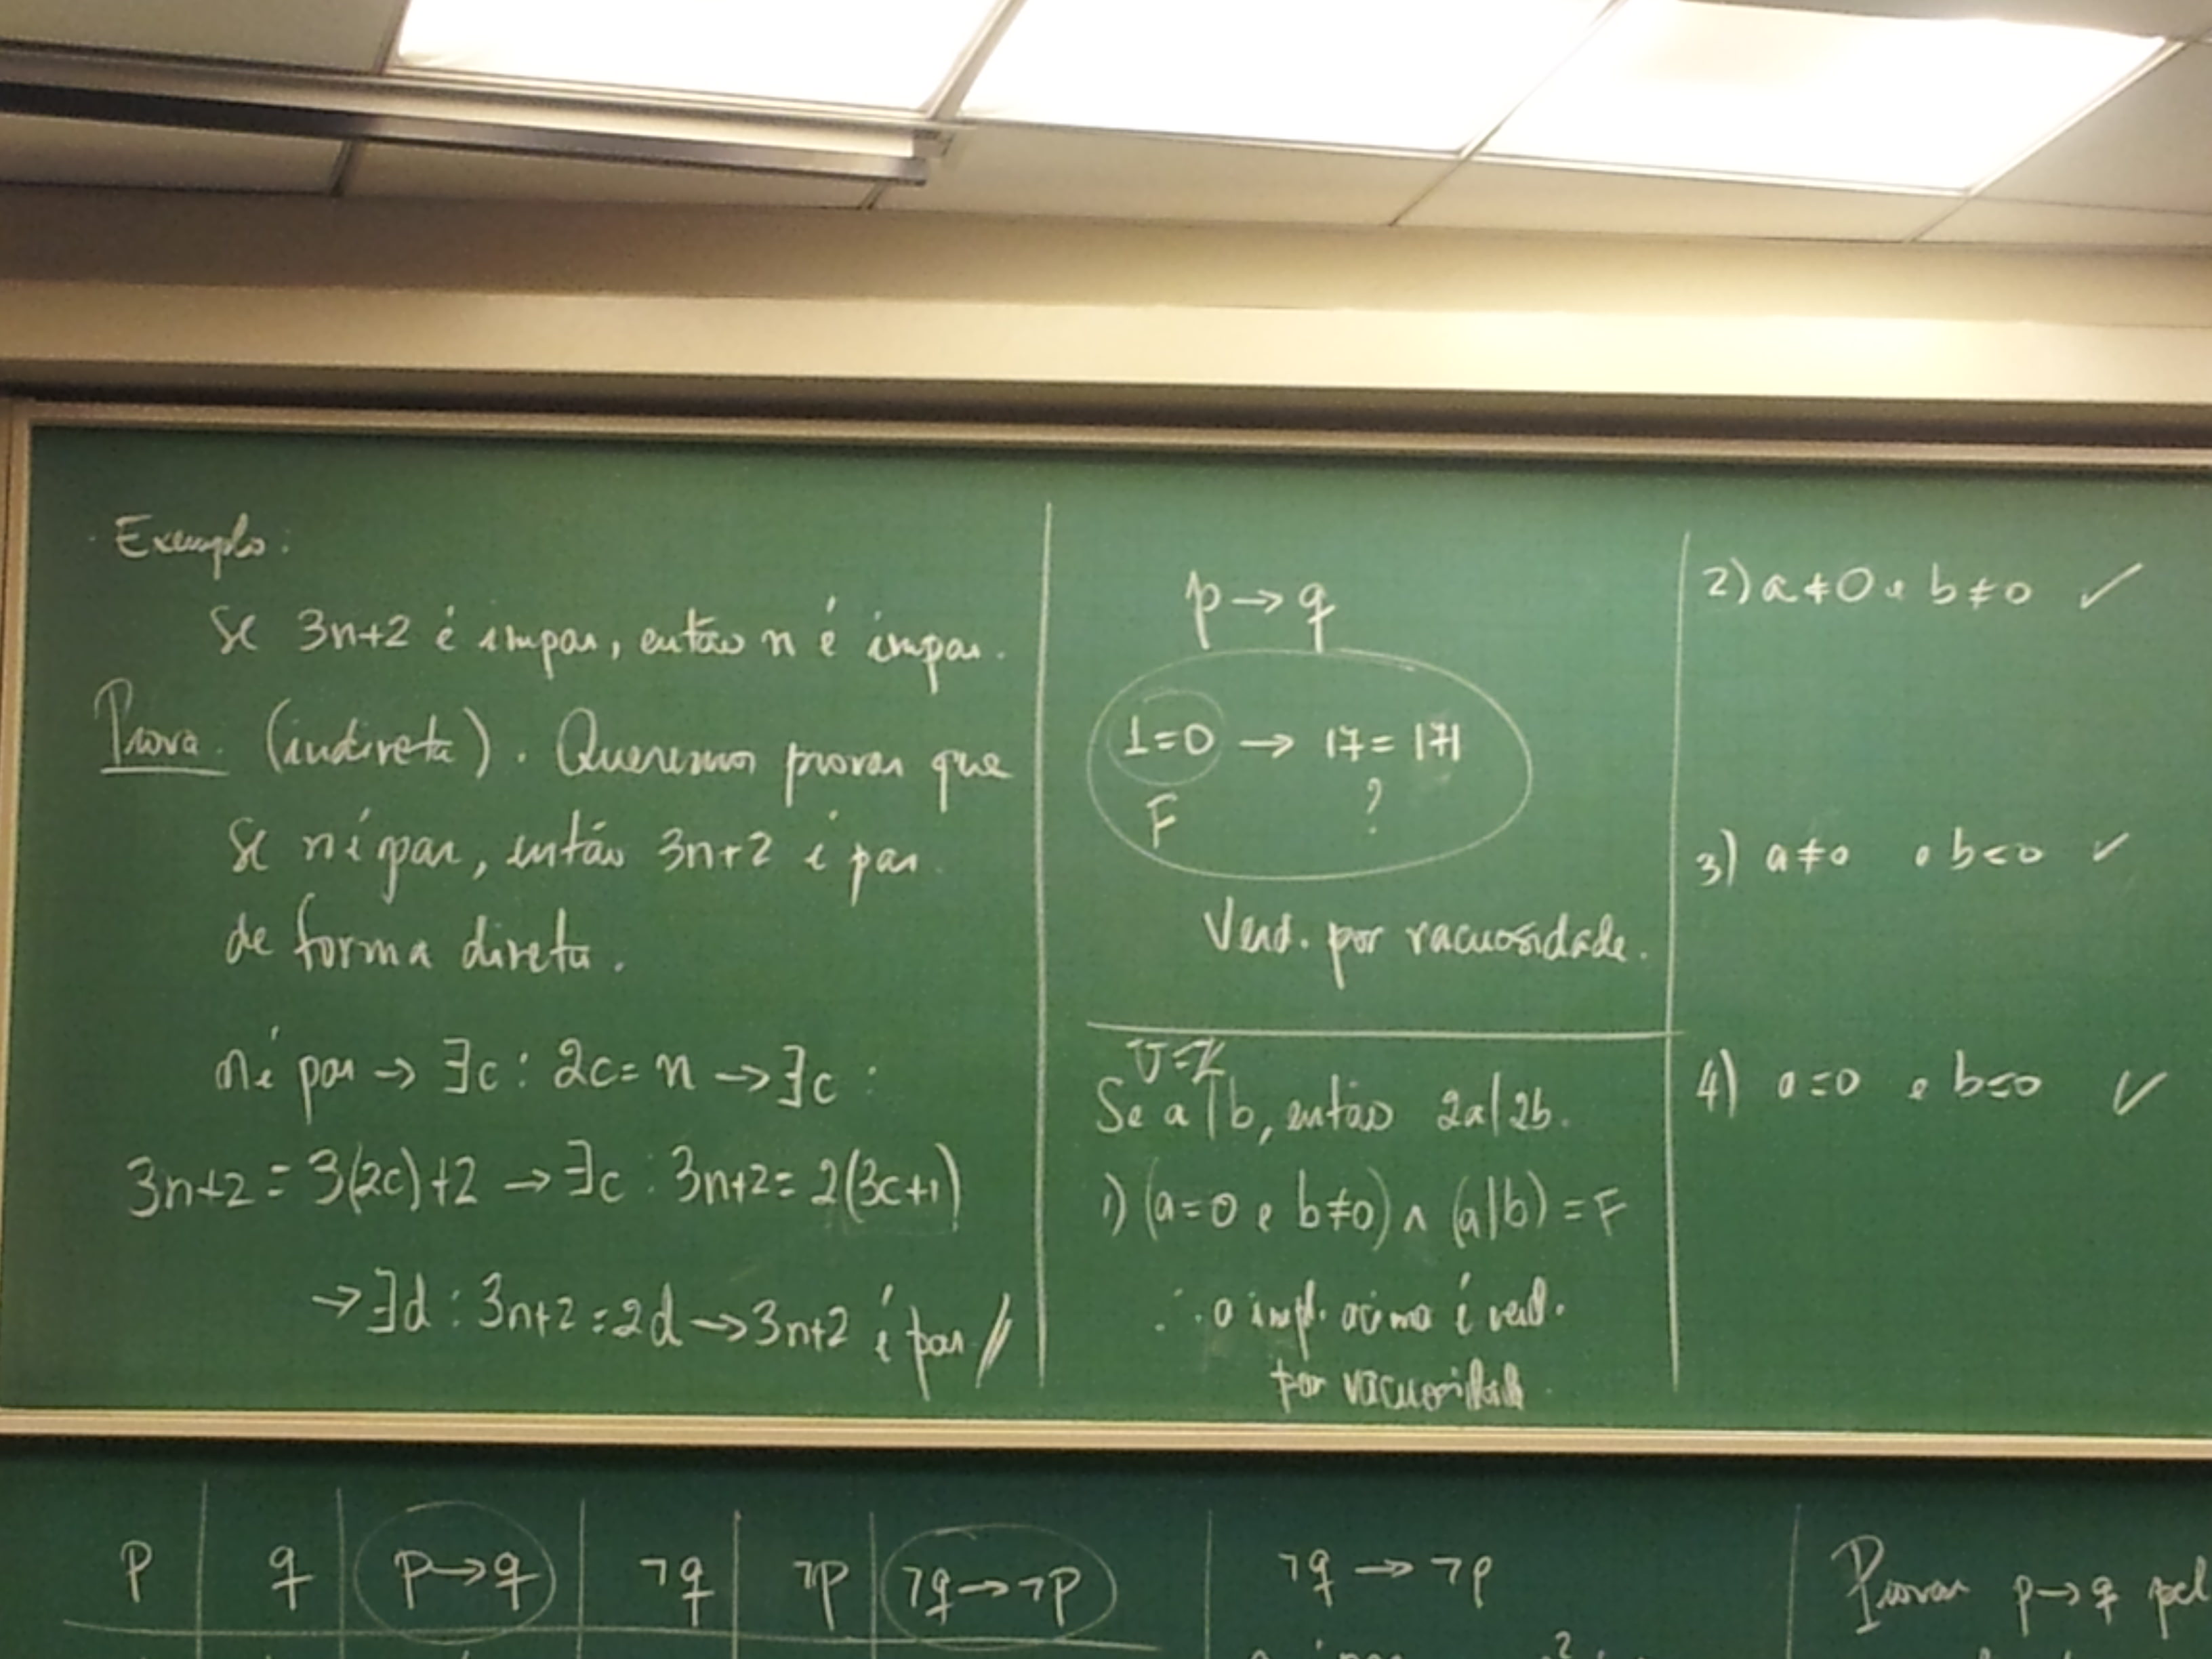 Exemplo:
Se 3n+2 é impar, então n é impar.
Prova. (indireta). Queremos provar que
se n é par, então 3n+2 é par
de forma direta.
n é par → ∃c : 2c = n → ∃c :
3n+2 = 3(2c)+2 → ∃c : 3n+2 = 2(3c+1)
→ ∃d : 3n+2 = 2d → 3n+2 é par //
p → q
1=0 → 17 = 171
F ?
Verd. por vacuosidade.
U=Z
Se a|b, então 2a|2b.
1) (a=0 e b≠0) ∧ (a|b) = F
∴ a impl. acima é verd.
por vacuosidade
2) a≠0 e b≠0 ✓
3) a≠0 e b=0 ✓
4) a=0 e b=0 ✓
p q p→q ¬q ¬p ¬q→¬p
¬q → ¬p
Provar p→q pel